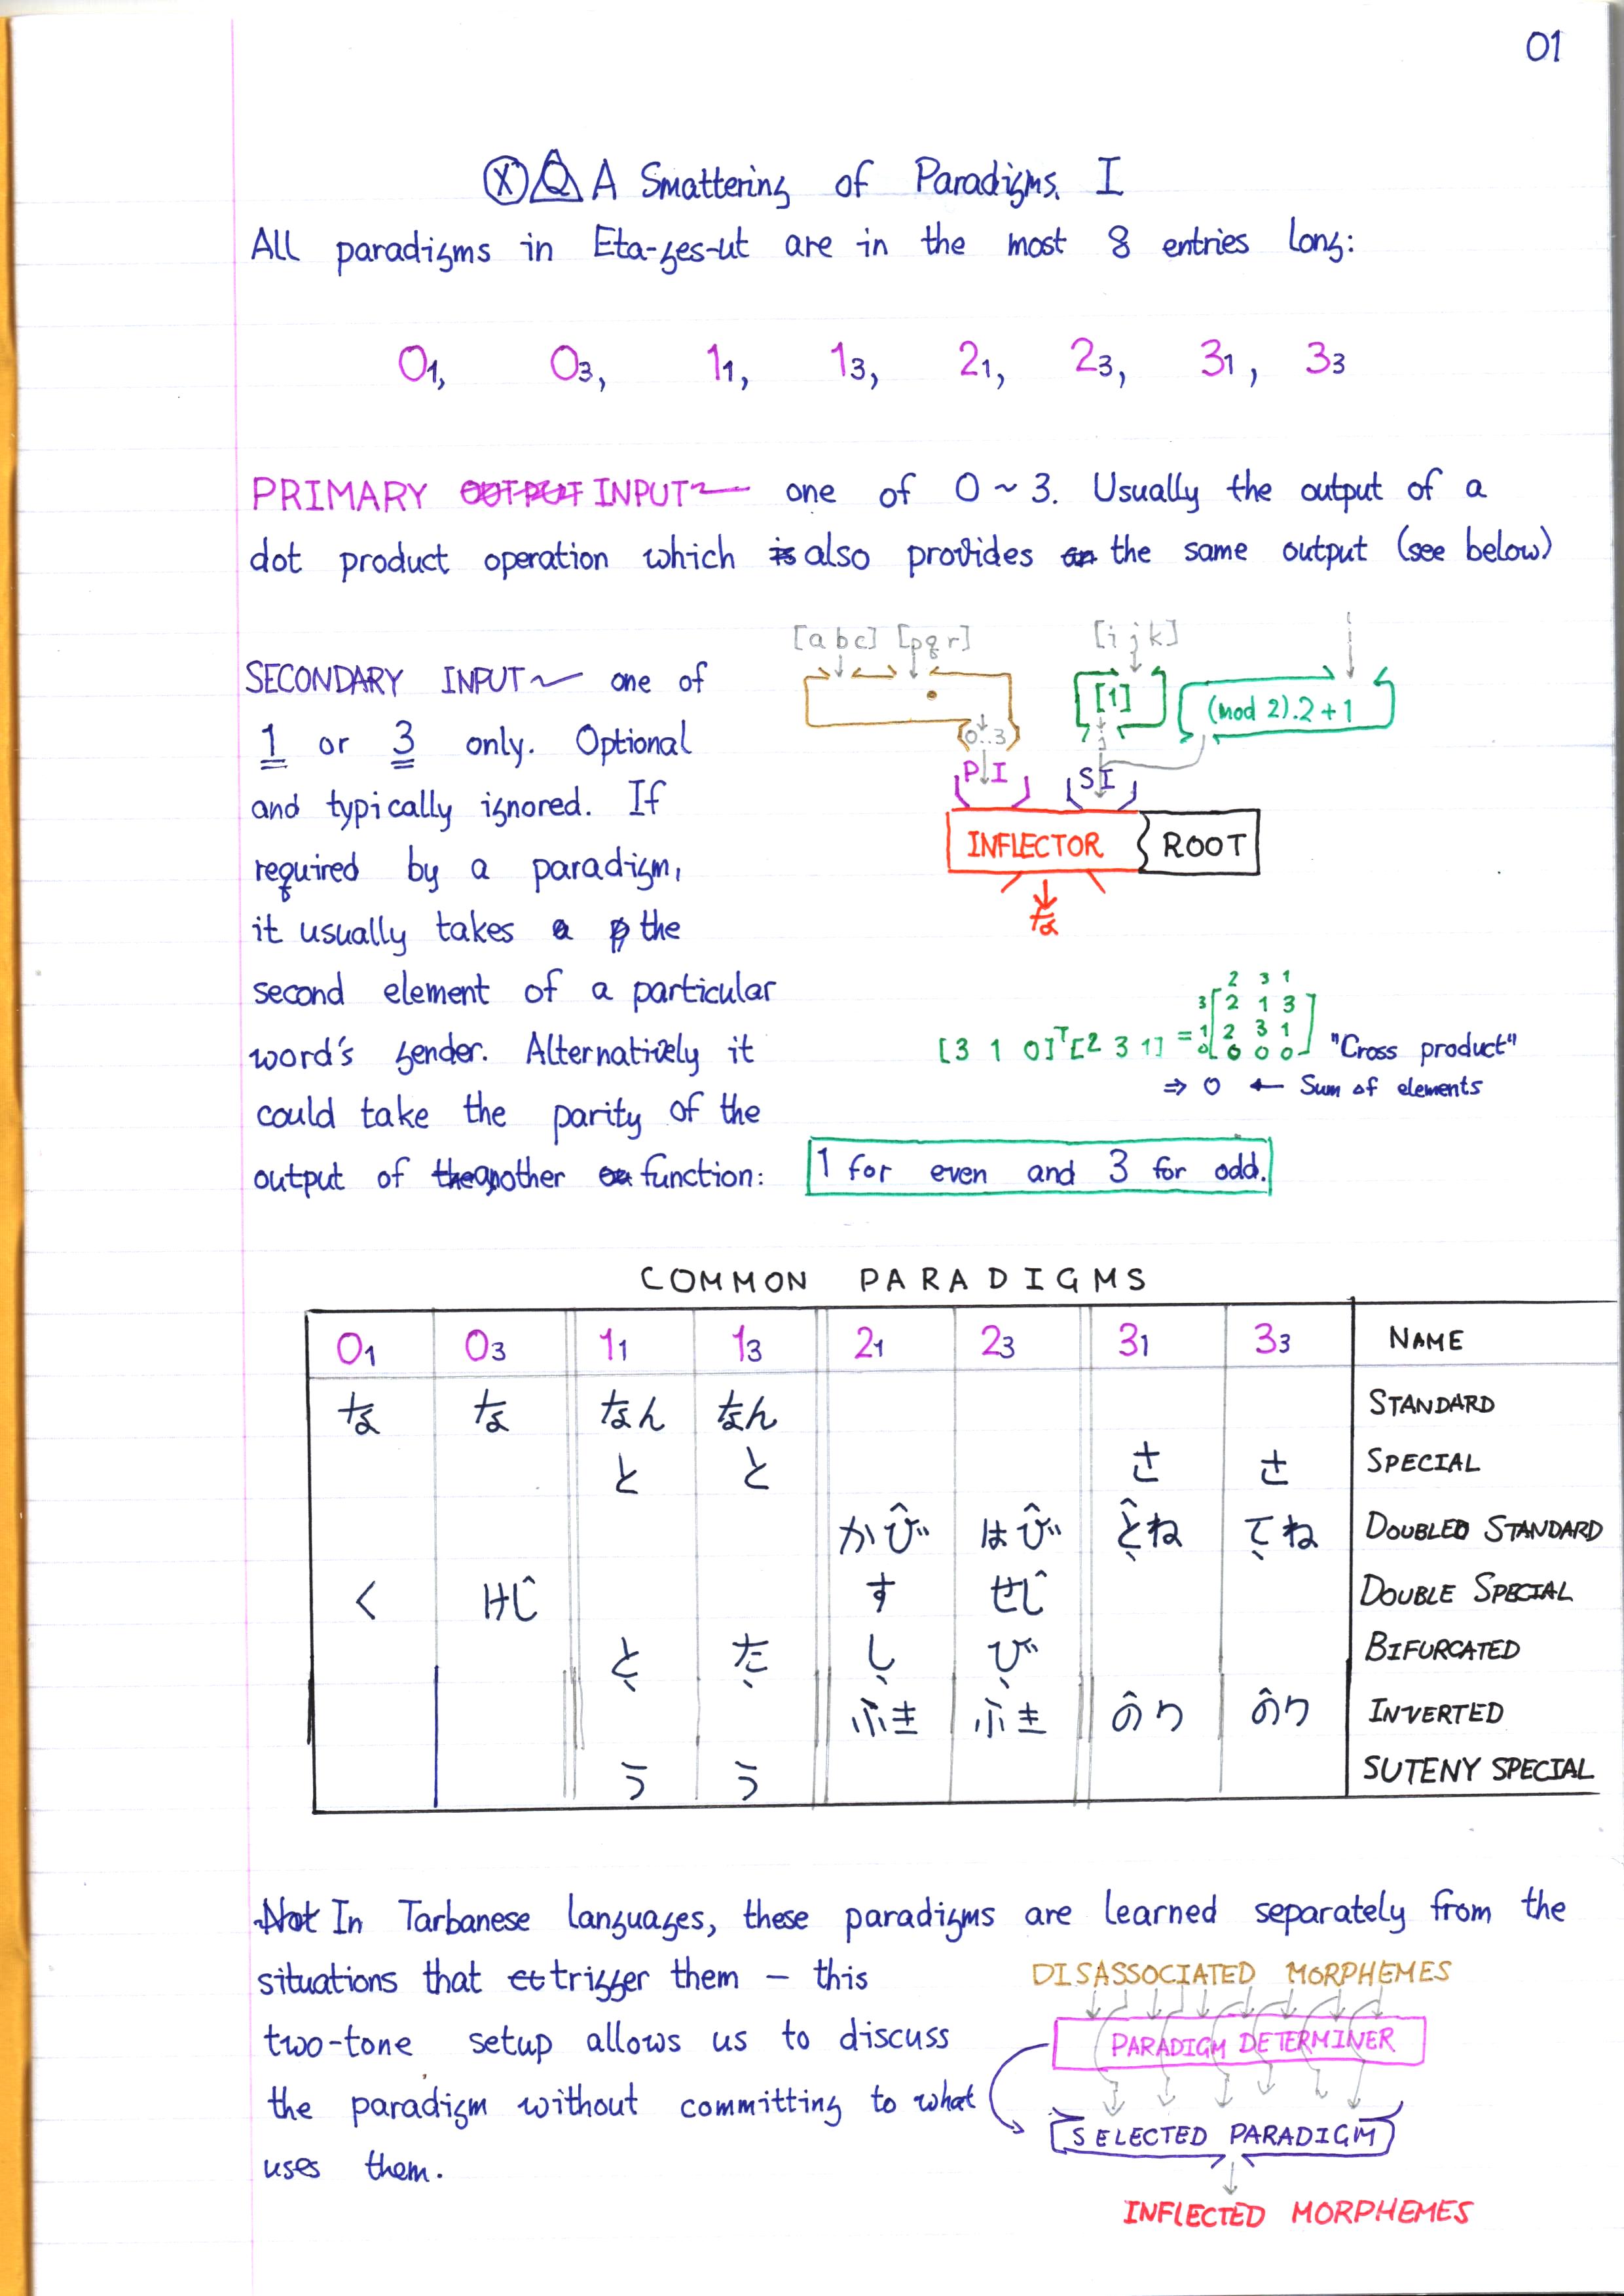 01
ⓍQ A Smattering of Paradigms. I
All paradigms in Eta-ges-ut are in the most 8 entries long:
0₁, 0₃, 1₁, 1₃, 2₁, 2₃, 3₁, 3₃
PRIMARY INPUT~ one of 0 ~ 3. Usually the output of a
dot product operation which also provides the same output (see below)
SECONDARY INPUT~ one of
1 or 3 only. Optional
and typically ignored. If
required by a paradigm,
it usually takes the
second element of a particular
word's gender. Alternatively it
could take the parity of the
output of another function:
1 for even and 3 for odd.
[a b c] [p q r] [i j k]
• [1] (mod 2).2+1
0..3 j
PI SI
INFLECTOR ROOT
な
2 3 1
3 2 1 3
[3 1 0]ᵀ[2 3 1] = 1 2 3 1 "Cross product"
0 0 0 0
⇒ 0 ← Sum of elements
COMMON PARADIGMS
0₁ 0₃ 1₁ 1₃ 2₁ 2₃ 3₁ 3₃ NAME
な な なん なん STANDARD
と と さ さ SPECIAL
かび はび とね てね DOUBLED STANDARD
く けじ す せじ DOUBLE SPECIAL
と た し び BIFURCATED
ぶき ぶき のり のり INVERTED
う う SUTENY SPECIAL
In Tarbanese languages, these paradigms are learned separately from the
situations that trigger them – this
two-tone setup allows us to discuss
the paradigm without committing to what
uses them.
DISASSOCIATED MORPHEMES
PARADIGM DETERMINER
SELECTED PARADIGM
INFLECTED MORPHEMES